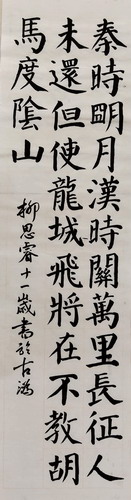 秦時明月漢時關萬里長征人
未還但使龍城飛將在不教胡
馬度陰山
柳思睿十一歲書於古潙